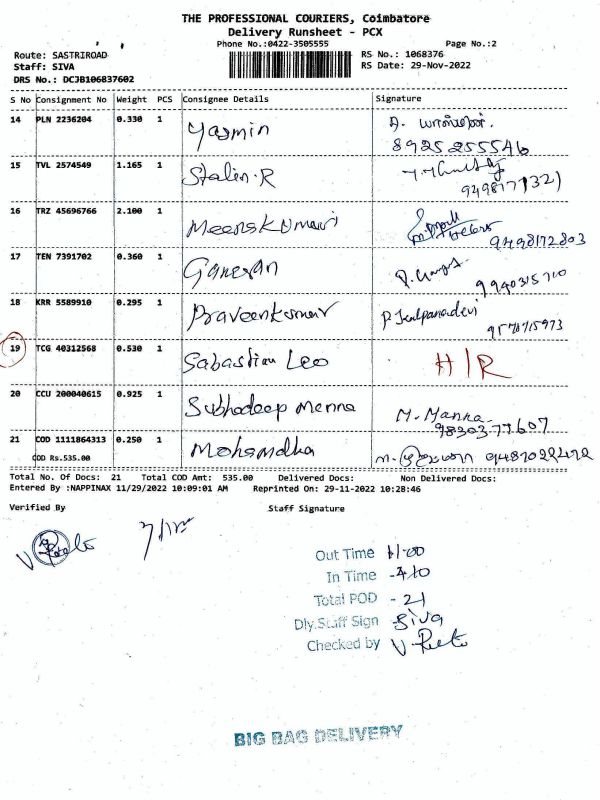 THE PROFESSIONAL COURIERS, Coimbatore
Delivery Runsheet - PCX
Phone No.:0422-3505555 Page No.:2
Route: SASTRIROAD RS No.: 1068376
Staff: SIVA RS Date: 29-Nov-2022
DRS No.: DCJB106837602
S No Consignment No Weight PCS Consignee Details Signature
14 PLN 2236204 0.330 1 Yasmin
8925255546
15 TVL 2574549 1.165 1 Stalin.R
16 TRZ 45696766 2.100 1 Meenskumari
9498172803
17 TEN 7391702 0.360 1 Ganesan
9940315710
18 KRR 5589910 0.295 1 Praveenkumar P Kalpanadevi
19 TCG 40312568 0.530 1 Sabastian Leo H/R
20 CCU 200040615 0.925 1 Subhadeep Menna M. Manna
9830377607
21 COD 1111864313 0.250 1 Mohsmdha
COD Rs.535.00
Total No. Of Docs: 21 Total COD Amt: 535.00 Delivered Docs: Non Delivered Docs:
Entered By :NAPPINAX 11/29/2022 10:09:01 AM Reprinted On: 29-11-2022 10:28:46
Verified By Staff Signature
Out Time 11-00
In Time - 4/0
Total POD - 21
Dly.Staff Sign Siva
Checked by
BIG BAG DELIVERY